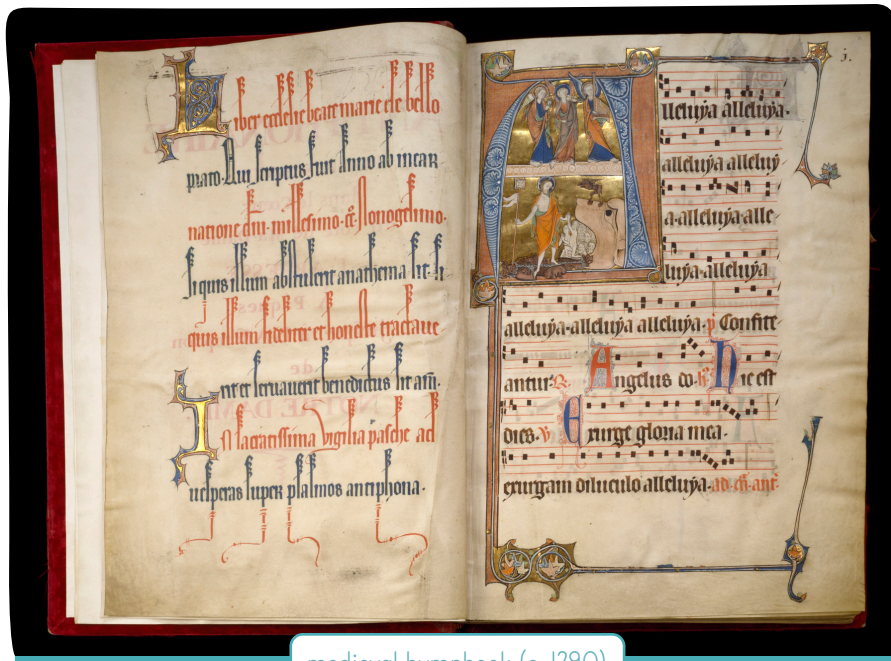 Liber ecclesie beate marie de bello
prato. Qui scriptus fuit Anno ab incar
natione dni. millesimo. cc. Nonogesimo.
si quis illum abstulerit anathema sit. si
quis illum fideliter et honeste tractave
rit et servaverit benedictus sit am.
In sacratissima vigilia pasche ad
vesperas super psalmos antiphona.
j.
Alleluya alleluya.
alleluya alleluy
a alleluya alle
luya alleluya
alleluya. alleluya alleluya. p Confite
antur. R. Angelus do. R. Hec est
dies. V Exurge gloria mea.
exurgam diluculo alleluya. ad. m. ant.
medieval hymnbook (c. 1290)